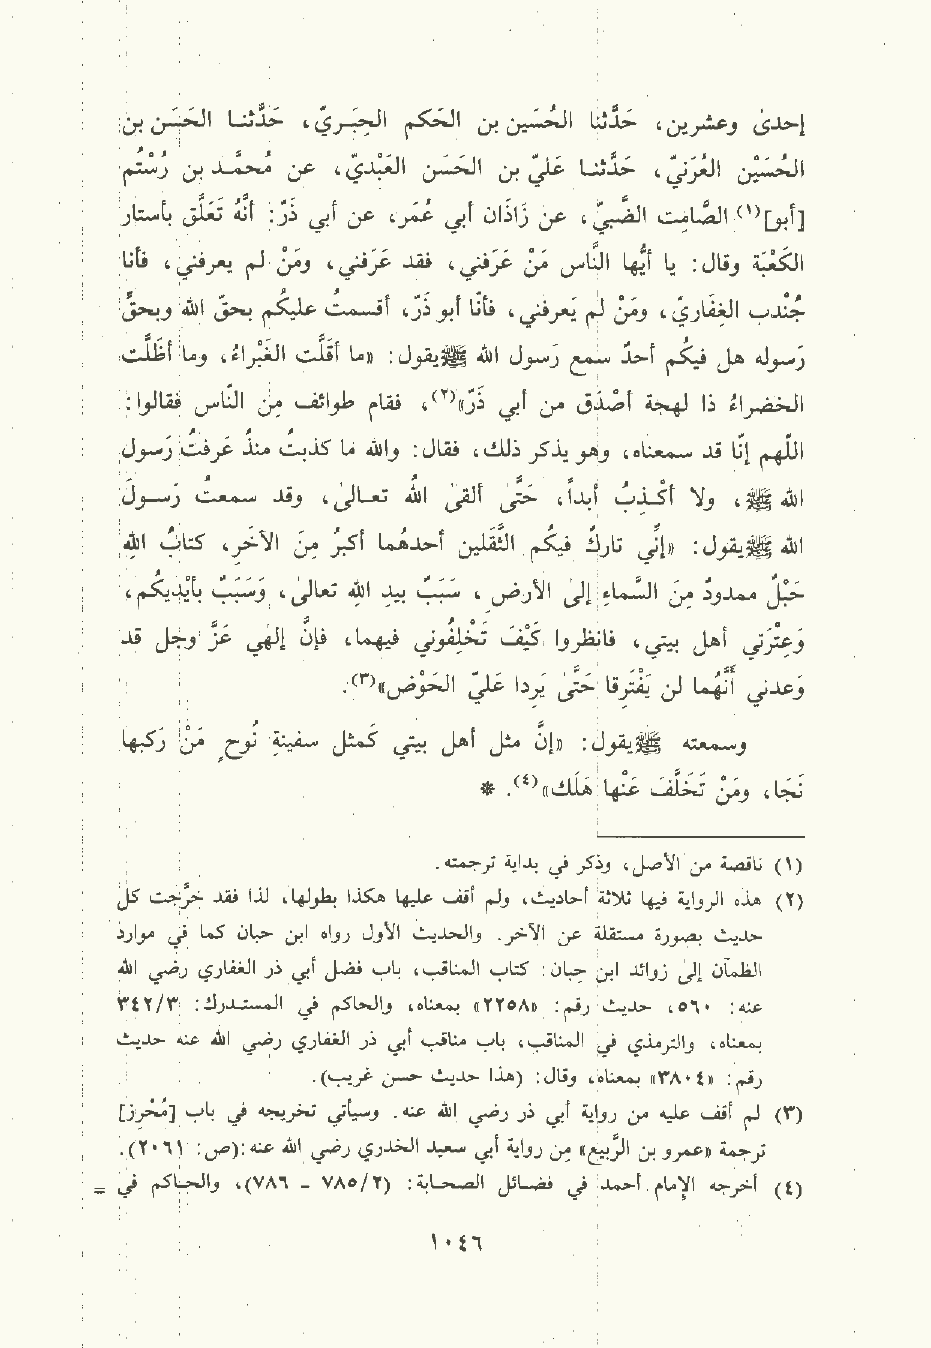 إحدىٰ وعشرين، حَدَّثنا الحُسَين بن الحَكم الحِبَـرِيّ، حَدَّثنـا الحَسَن بن
الحُسَيْن العُرَنيّ، حَدَّثنـا عَليّ بن الحَسَن العَبْديّ، عن مُحمَّـد بن رُسْتُم
[أبو](١) الصَّامِت الضَّبيّ، عن زَاذَان أبي عُمَر، عن أبي ذَرّ: أنَّهُ تَعَلَّق بأستار
الكَعْبَة وقال: يا أيُّها النَّاس مَنْ عَرَفَني، فقد عَرَفَني، ومَنْ لم يعرفني، فأنا
جُنْدب الغِفَاريّ، ومَنْ لم يَعرفني، فأنا أبو ذَرّ، أقسمتُ عليكُم بحقّ الله وبحقّ
رَسوله هل فيكُم أحدٌ سمع رَسول الله ﷺ يقول: «ما أقَلَّت الغَبْراءُ، وما أظَلَّت
الخضراءُ ذا لهجة أصْدَق من أبي ذَرّ»(٢)، فقام طوائف مِن النَّاس فقالوا:
اللَّهم إنّا قد سمعناه، وهو يذكر ذلك، فقال: والله ما كذبتُ منذُ عَرفتُ رَسول
الله ﷺ، ولا أكْـذِبُ أبداً، حَتَّىٰ ألقىٰ اللهُ تعـالىٰ، وقد سمعتُ رَسـولَ
الله ﷺ يقول: «إنّي تاركٌ فيكُم الثَّقَلين أحدهُما أكبرُ مِن الآخَر، كتابُ اللهِ
حَبْلٌ ممدودٌ مِنَ السَّماءِ إلىٰ الأرض، سَبَبٌ بيدِ اللهِ تعالىٰ، وَسَبَبٌ بأيْدِيكُم،
وَعِتْرَتي أهل بيتي، فانظروا كَيْفَ تَخْلِفُوني فيهما، فإنَّ إلٰهي عَزَّ وجل قد
وَعدني أنَّهُما لن يَفْتَرِقا حَتَّىٰ يَرِدا عَليّ الحَوْض»(٣).
وسمعته ﷺ يقول: «إنَّ مثل أهل بيتي كَمثل سفينةِ نُوحٍ مَنْ رَكبها
نَجَا، ومَنْ تَخَلَّفَ عَنْها هَلَك»(٤). *
(١) ناقصة من الأصل، وذكر في بداية ترجمته.
(٢) هذه الرواية فيها ثلاثة أحاديث، ولم أقف عليها هكذا بطولها، لذا فقد خرَّجت كل
حديث بصورة مستقلة عن الآخر. والحديث الأول رواه ابن حبان كما في موارد
الظمآن إلى زوائد ابن حبان: كتاب المناقب، باب فضل أبي ذر الغفاري رضي الله
عنه: ٥٦٠، حديث رقم: «٢٢٥٨» بمعناه، والحاكم في المستـدرك: ٣٤٢/٣
بمعناه، والترمذي في المناقب، باب مناقب أبي ذر الغفاري رضي الله عنه حديث
رقم: «٣٨٠٤» بمعناه، وقال: (هذا حديث حسن غريب).
(٣) لم أقف عليه من رواية أبي ذر رضي الله عنه. وسيأتي تخريجه في باب [مُحْرِز]
ترجمة «عمرو بن الرَّبيع» مِن رواية أبي سعيد الخدري رضي الله عنه:(ص: ٢٠٦١).
(٤) أخرجه الإمام أحمد في فضـائل الصحـابة: (٧٨٥/٢ ـ ٧٨٦)، والحـاكم في =
١٠٤٦